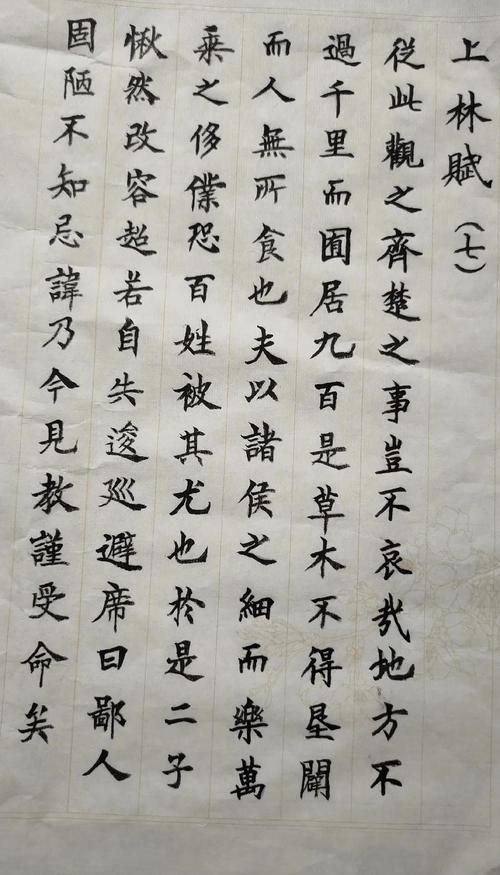 上林賦（七）
從此觀之齊楚之事豈不哀哉地方不
過千里而囿居九百是草木不得垦闢
而人無所食也夫以諸侯之細而樂萬
乘之侈僕恐百姓被其尤也於是二子
愀然改容超若自失逡巡避席曰鄙人
固陋不知忌諱乃今見教謹受命矣